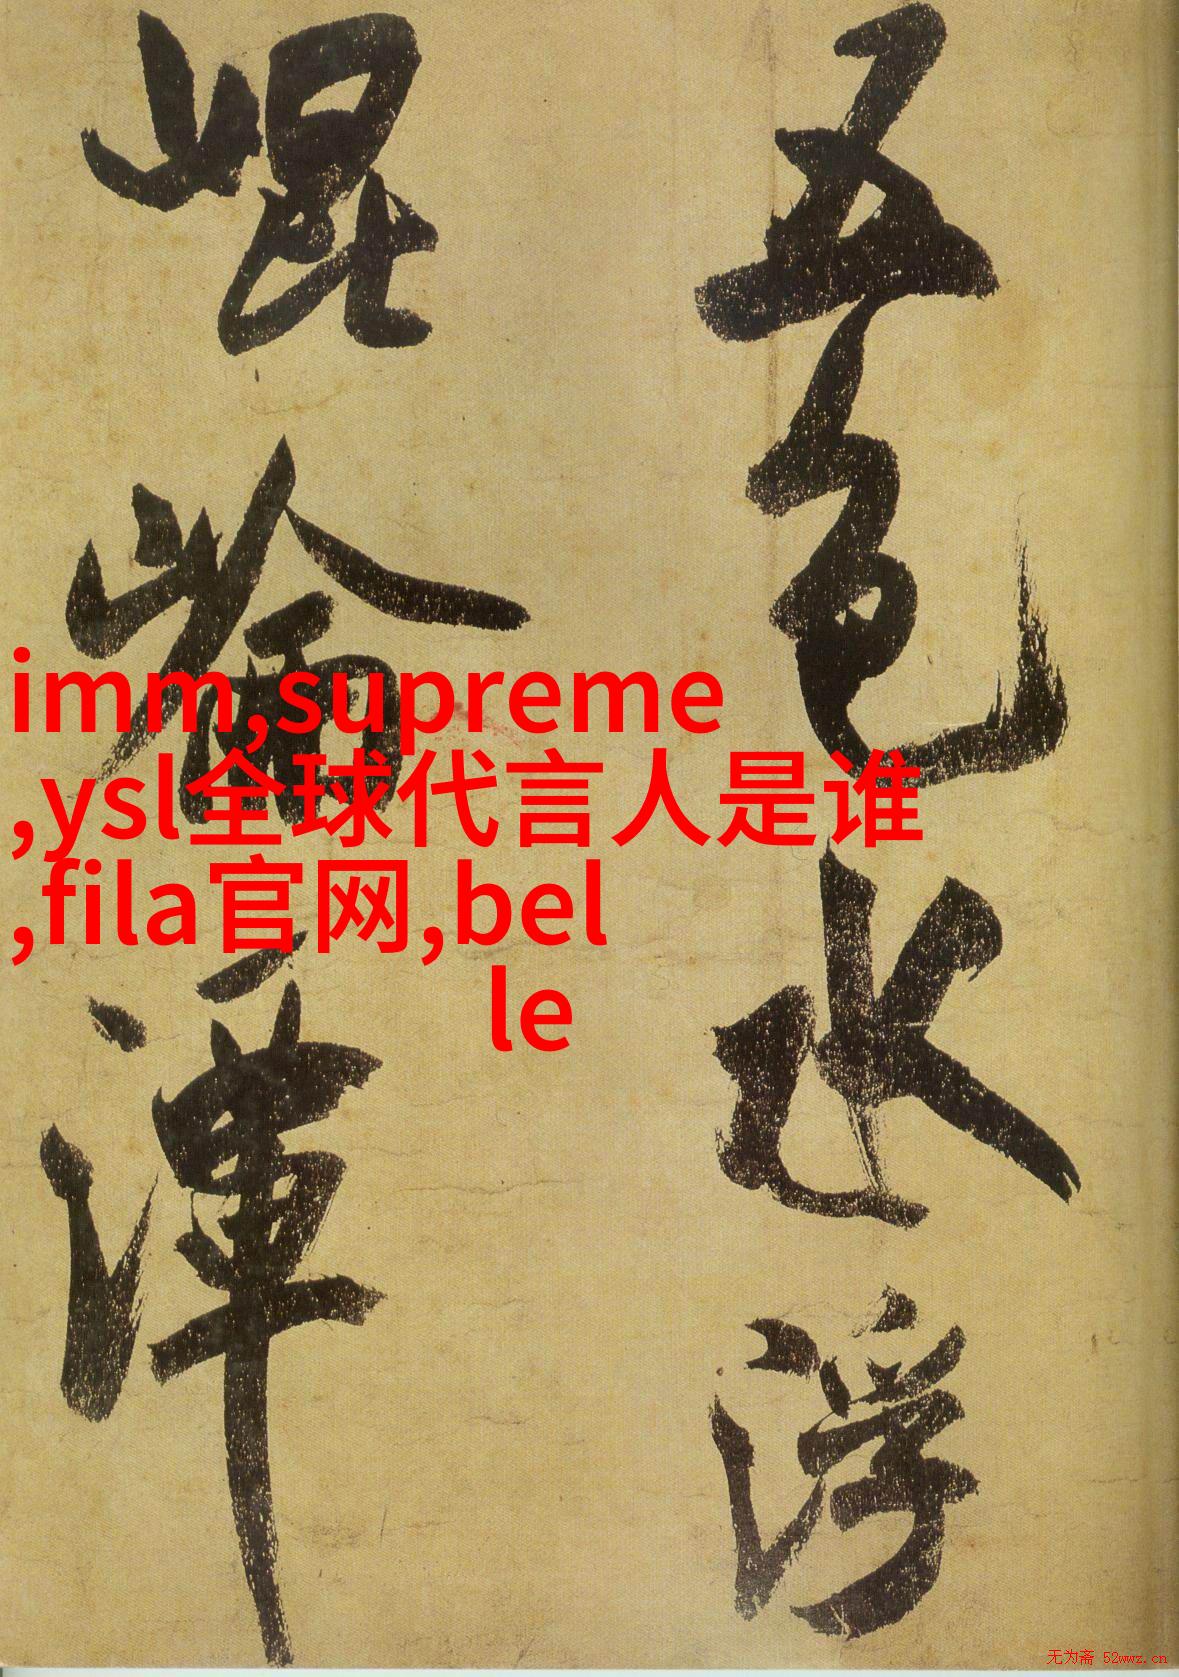 五色水浮
崐崘潭
imm,supreme
,ysl全球代言人是谁
,fila官网,bel
le
无为斋 52wwz.cn